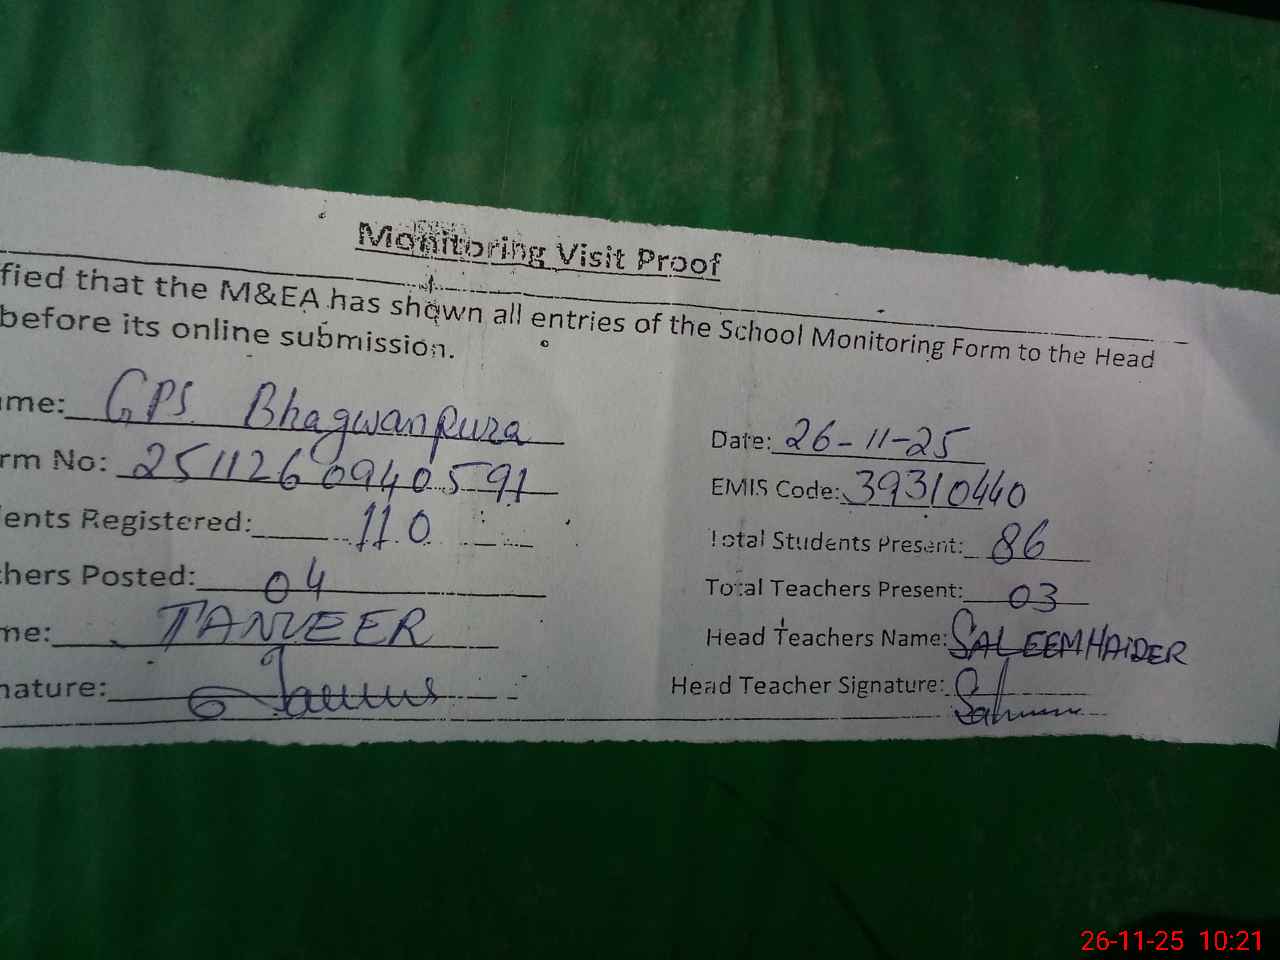 Monitoring Visit Proof
fied that the M&EA has shown all entries of the School Monitoring Form to the Head
before its online submission.
ame: GPS Bhagwanpura
Date: 26-11-25
rm No: 2511260940591
EMIS Code: 39310440
ents Registered: 110
Total Students Present: 86
chers Posted: 04
Total Teachers Present: 03
me: TANVEER
Head Teachers Name: SALEEM HAIDER
nature:
Head Teacher Signature:
26-11-25 10:21